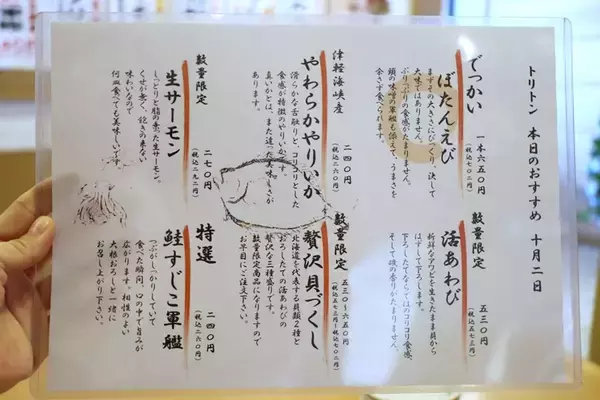 トリトン 本日のおすすめ 十月二日
でっかい
ぼたんえび
一本六五〇円
(税込七〇二円)
まずその大きさにびっくり、決して
大味ではありません。
ぷりっぷりの食感がたまりません。
頭の味噌の軍艦も添えて、うまさを
余さず食べられます。
津軽海峡産
やわらかやりいか
二四〇円
(税込二六〇円)
滑らかな舌触りと、コリコリとした
食感が特徴のやりいか。
真いかとは、また違った美味しさが
あります。
数量限定
生サーモン
二七〇円
(税込二九二円)
しっとりと脂の乗った生サーモン。
くせが無く、飽きの来ない
味わいなので
何皿食べても美味しいです。
数量限定
活あわび
五三〇円
(税込五七三円)
新鮮なアワビを生きたまま貝から
はずして下ろします。
下ろしたてならではのコリコリ食感、
そして磯の香りがたまりません。
数量限定
贅沢貝づくし
五三〇~六五〇円
(税込五七三円~税込七〇二円)
北海道を代表する貝類2種と
おろしたての活あわびの
贅沢な三種盛りです。
数量限定商品になりますので
お早目にご注文下さい。
特選
鮭すじこ軍艦
二四〇円
(税込二六〇円)
つぶがしっかりしていて
食べた瞬間、口の中で旨みが
広がります。相性のよい
大根おろしと一緒に
お召し上がり下さい。